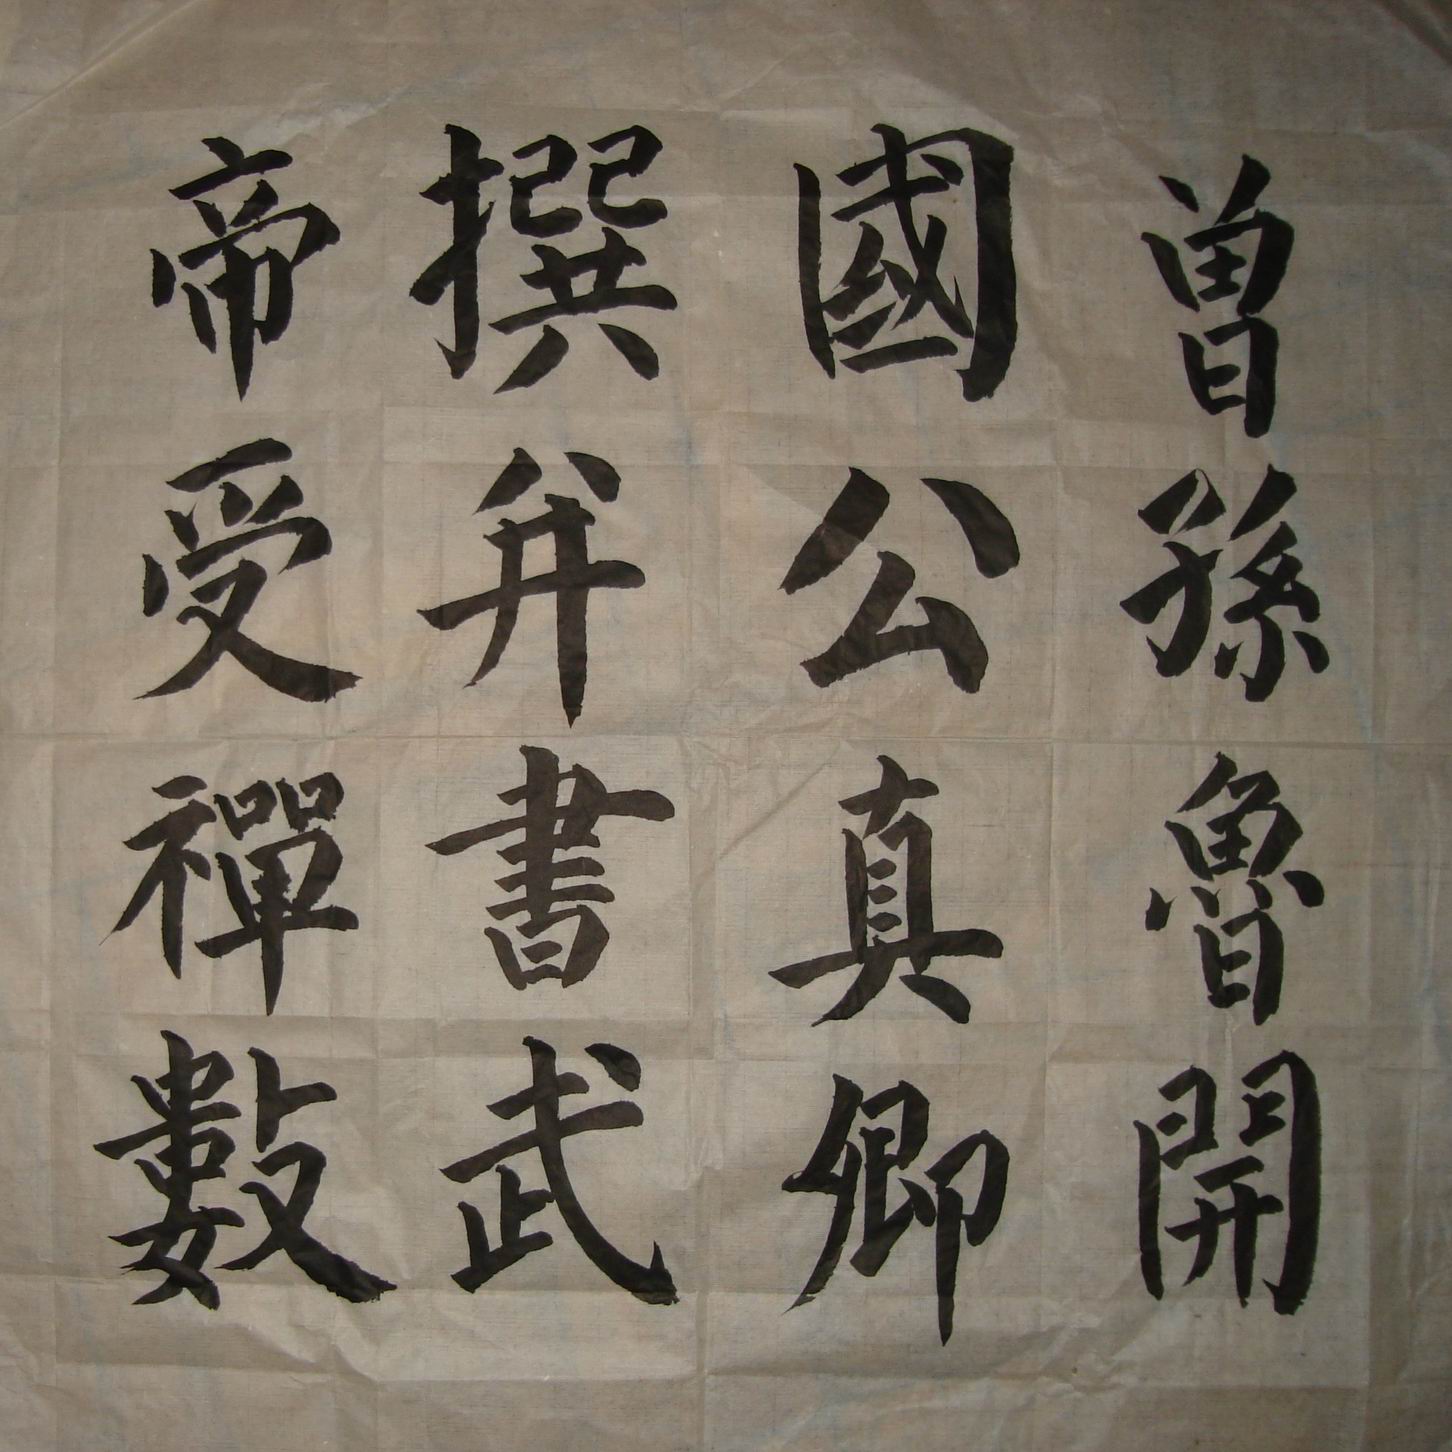 曾孫魯開
國公真卿
撰并書武
帝受禪數